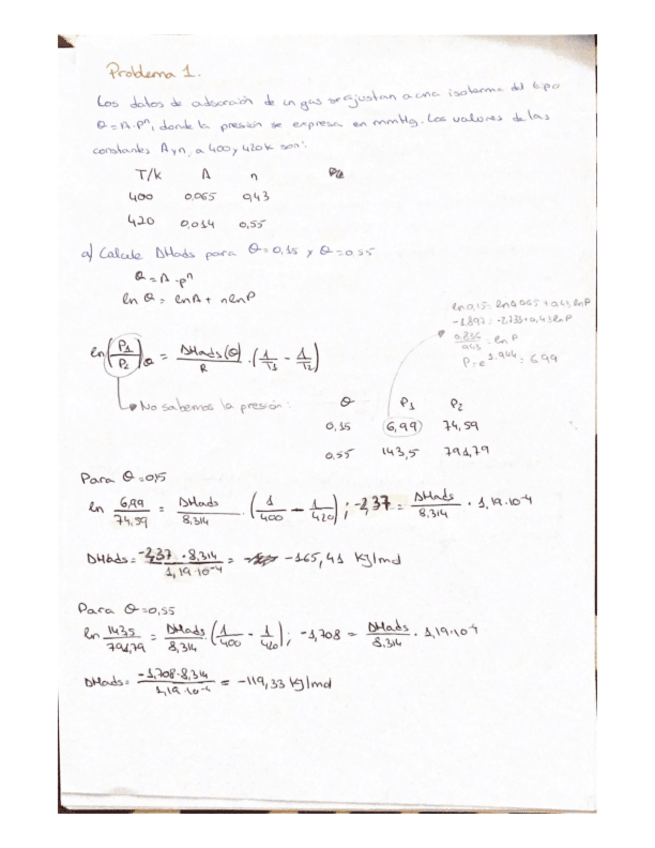 Problema 1.
Los datos de adsorción de un gas se ajustan a una isoterma del tipo
θ = A·Pⁿ, donde la presión se expresa en mmHg. Los valores de las
constantes A y n, a 400 y 420 K son:
T/K A n
400 0,065 0,43
420 0,014 0,55
a) Calcule ΔHads para θ=0,15 y θ=0,55
θ = A·pⁿ
ln θ = lnA + n lnP
ln 0,15 = ln 0,065 + 0,43 ln P
-1,897 = -2,733 + 0,43 ln P
0,836/0,43 = ln P
P = e^1,944 = 6,99
ln(P₁/P₂)θ = ΔHads(θ)/R · (1/T₁ - 1/T₂)
No sabemos la presión:
θ P₁ P₂
0,15 6,99 74,59
0,55 143,5 791,79
Para θ=0,15
ln 6,99/74,59 = ΔHads/8,314 · (1/400 - 1/420); -2,37 = ΔHads/8,314 · 1,19·10⁻⁴
ΔHads = -2,37·8,314/1,19·10⁻⁴ = -165,41 KJ/mol
Para θ=0,55
ln 143,5/791,79 = ΔHads/8,314 (1/400 - 1/420); -1,708 = ΔHads/8,314 · 1,19·10⁻⁴
ΔHads = -1,708·8,314/1,19·10⁻⁴ = -119,33 KJ/mol